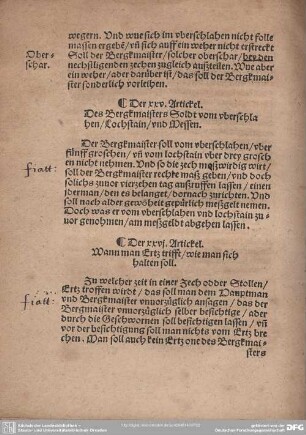 wegern. Und wue sich im vberschlahen nicht solle
massen ergebẽ/ vñ sich auff ein weher nicht erstreckt
Ober=
schar.
Soll der Bergkmaister/ solcher oberschar/ bey den
nechstligenden zechen zugleich außteilen. Wue aber
ein weher/ ader darüber ist/ das soll der Bergkmai=
ster sonderlich vorleihen.
¶ Der xxv. Artickel.
Des Bergkmaisters Soldt vom vberschla
hen/ Lochstain/ vnd Messen.
Der Bergkmaister soll vom vberschlahen/ vber
fiat:
fünff groschen/ vñ vom lochstain vber drey grosch
en nicht nehmen. Und so die zech maßwirdig wirt/
soll der Bergkmaister rechte maß geben/ vnd doch
solichs zuuor vierzehen tag außruffen lassen/ einen
yderman/ den es belanget/ dornach zurichten. Und
soll nach alder gewöheit gepürlich meßgelt nemen.
Doch was er vom vberschlahen vnd lochstain zu=
uor genohmen/ am meßgeldt abgehen lassen.
¶ Der xxvi. Artickel.
Wann man Ertz trifft/ wie man sich
halten soll.
Zu welcher zeit in einer Zech odder Stollen/
fiat:
Ertz troffen wirdt/ das soll man dem Hauptman
vnd Bergkmaister vnuorzüglich ansagen/ das der
Bergmaister vnuorzüglich selber besichtige/ ader
durch die Geschwornen soll besichtigen lassen/ vñ
vor der besichtigung soll man nichts vom Ertz bre
chen. Man soll auch kein Ertz one des Bergkmai=
sters